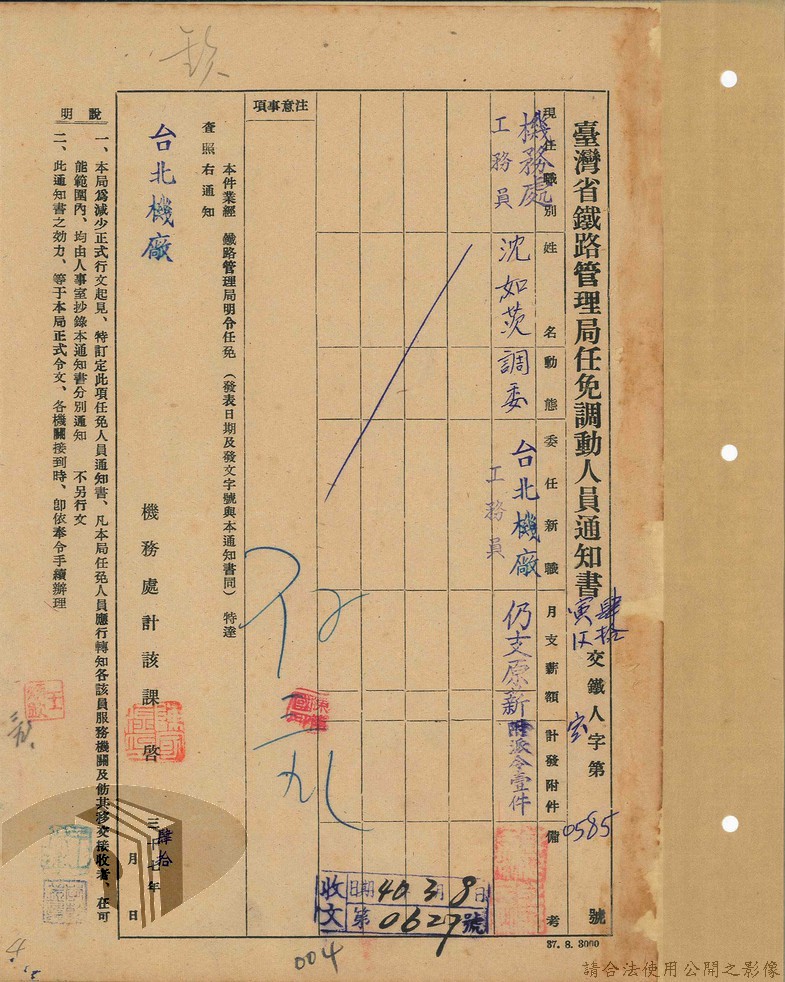 臺灣省鐵路管理局任免調動人員通知書
肆拾
寅
交鐵人字第
0585
號
現任職別
姓名
動態
委任新職
月支薪額
計發附件
備考
機務處
工務員
沈如茨
調委
台北機廠
工務員
仍支原薪
附派令壹件
注意事項
本件業經 鐵路管理局明令任免(發表日期及發文字號與本通知書同) 特達
查照右通知
台北機廠
機務處計該課 啓
三十七年
肆拾
月 日
說明
一、本局爲減少正式行文起見、特訂定此項任免人員通知書、凡本局任免人員應行轉知各該員服務機關及飭其移交接收者、在可
能範圍內、均由人事室抄錄本通知書分別通知 不另行文
二、此通知書之効力、等于本局正式令文、各機關接到時、卽依奉令手續辦理
收文
日期 40 3月 8日
第 0627 號
004
37. 8. 3000
請合法使用公開之影像